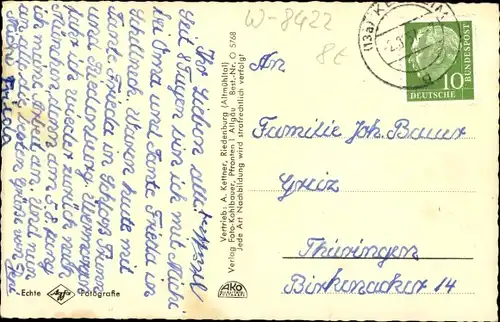 W-8422
8€
(13a)
10
DEUTSCHE
BUNDESPOST
An
Familie Joh. Bauer
Greiz
Thüringen
Birkenacker 14
Ihr Lieben alle
Seit 8 Tagen bin ich mit Michi
bei Omi und Tante Frieda in
Waren heute mit
Tante Frieda in
und Riedenburg. Übermorgen
fahr ich wieder zurück nach
München, denn am 5.8. fang
ich meine Arbeit an. Und nun
an alle die besten Grüße von Ihrer
Vertrieb: A. Kettner, Riedenburg (Altmühltal)
Verlag Foto-Kohlbauer, Pfronten i. Allgäu Best.-Nr. O 5768
Jede Art Nachbildung wird strafrechtlich verfolgt
AKO
Echte Agfa Fotografie